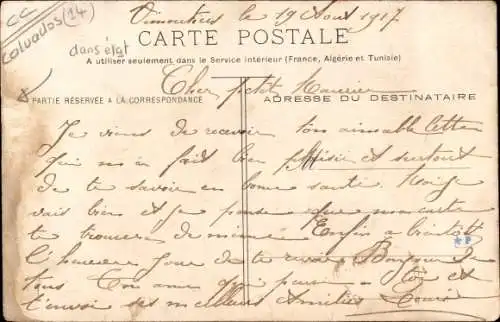 CC
Calvados (14)
dans état
Vimoutiers le 19 Aout 1917
CARTE POSTALE
A utiliser seulement dans le Service Intérieur (France, Algérie et Tunisie)
Cher petit Maurice
PARTIE RÉSERVÉE A LA CORRESPONDANCE
ADRESSE DU DESTINATAIRE
Je viens de recevoir ton aimable lettre
qui m'a fait bien plaisir et surtout
de te savoir en bonne santé. Moi je
vais bien et je pense que ma carte
te trouvera de même. Enfin a bientôt
l'heureux jour de te revoir Bonjour a
tous Ton ami qui pense a toi et
t'envoi ses meilleurs Amitiés Louis